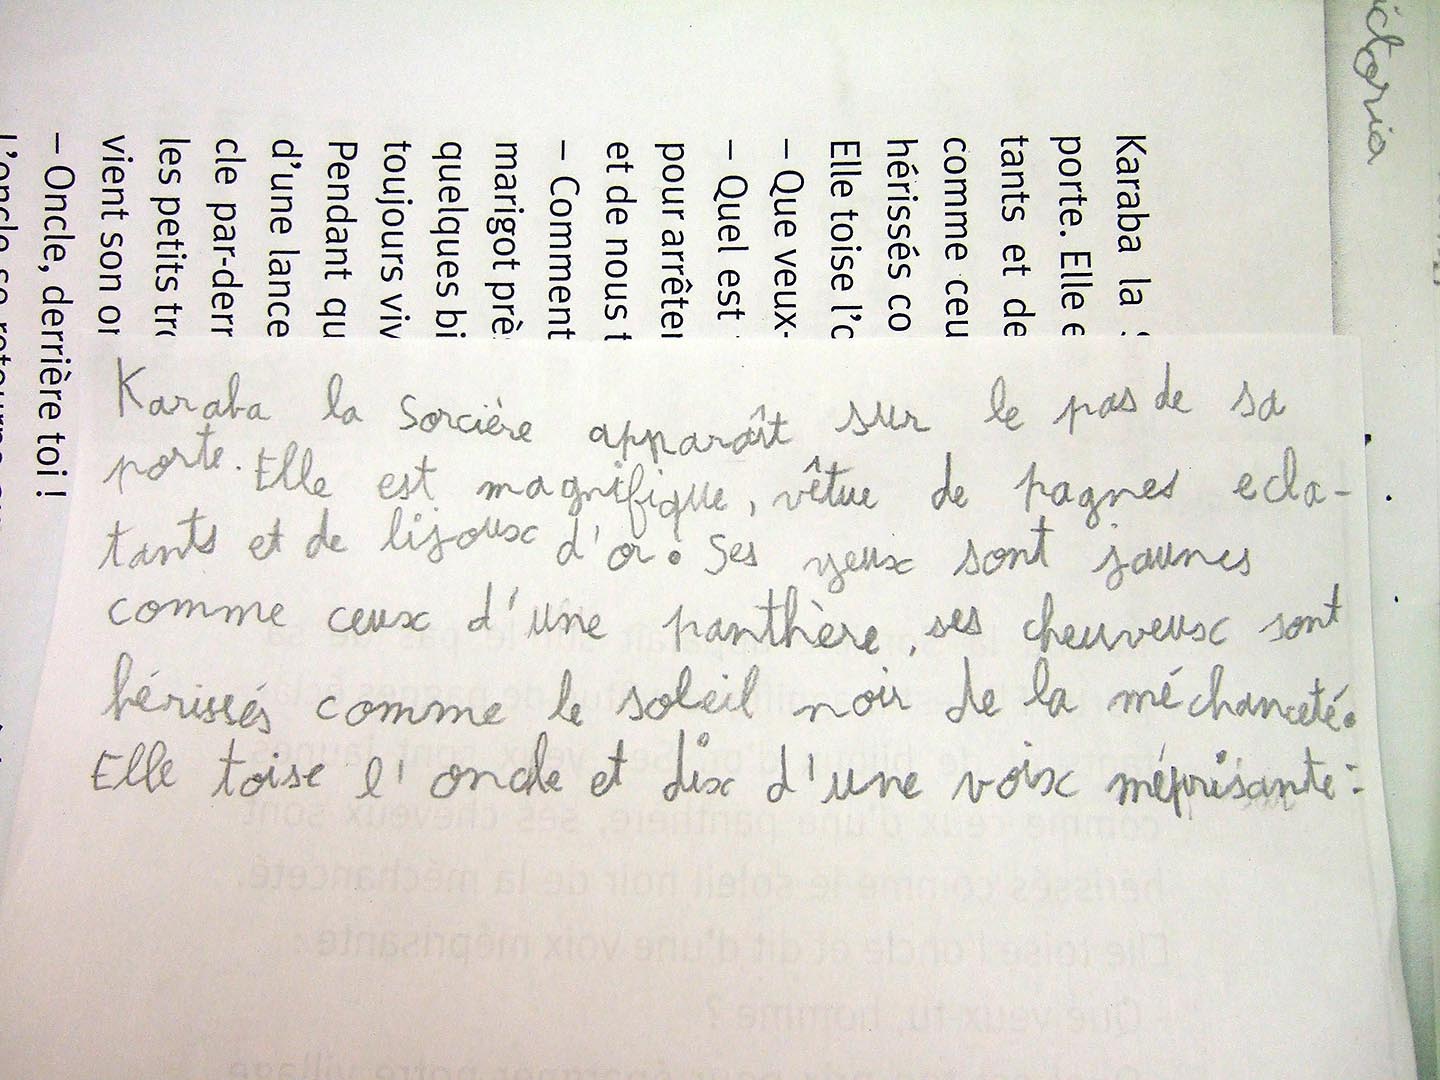 Karaba la
porte. Elle e
tants et de
comme ceu
hérissés co
Elle toise l'o
– Que veux-
– Quel est
pour arrêter
et de nous t
– Comment
marigot prè
quelques bi
toujours viv
Pendant qu
d'une lance
cle par-derr
les petits tro
vient son or
– Oncle, derrière toi !
Karaba la Sorcière apparaît sur le pas de sa
porte. Elle est magnifique, vêtue de pagnes ecla-
tants et de bijoux d'or. Ses yeux sont jaunes
comme ceux d'une panthère, ses cheuveux sont
hérissés comme le soleil noir de la méchanceté.
Elle toise l'oncle et dix d'une voix méprisante :